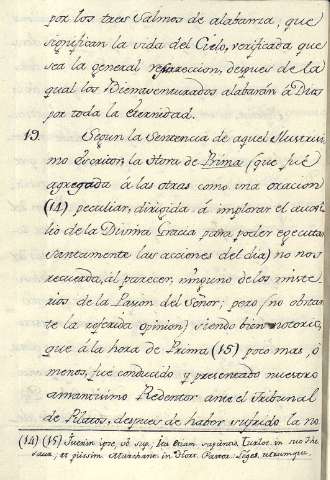 por los tres Salmos de alabanza, que
significan la vida del Cielo, verificada que
sea la general resureccion, despues de la
qual los Bienaventurados alabarán á Dios
por toda la eternidad.
19. Segun la Sentencia de aquel Ilustrisi-
mo Escritor, la Hora de Prima (que fué
agregada á las otras como una oracion
(14) peculiar, dirigida á implorar el auxi-
lio de la Divina Gracia para poder egecutar
santamente las acciones del dia) no nos
recuerda, al parecer, ninguno de los miste-
rios de la Pasion del Señor; pero (no obstan-
te la referida opinion) siendo bien notorio,
que á la hora de Prima (15) poco mas, ó
menos, fue conducido y presentado nuestro
amantisimo Redentor ante el Tribunal
de Pilatos, despues de haber sufrido la no-
(14) (15) ipse, sup. etiam in
et piissim. Marchant. in Hort. Pastor. Leges, utrumque.